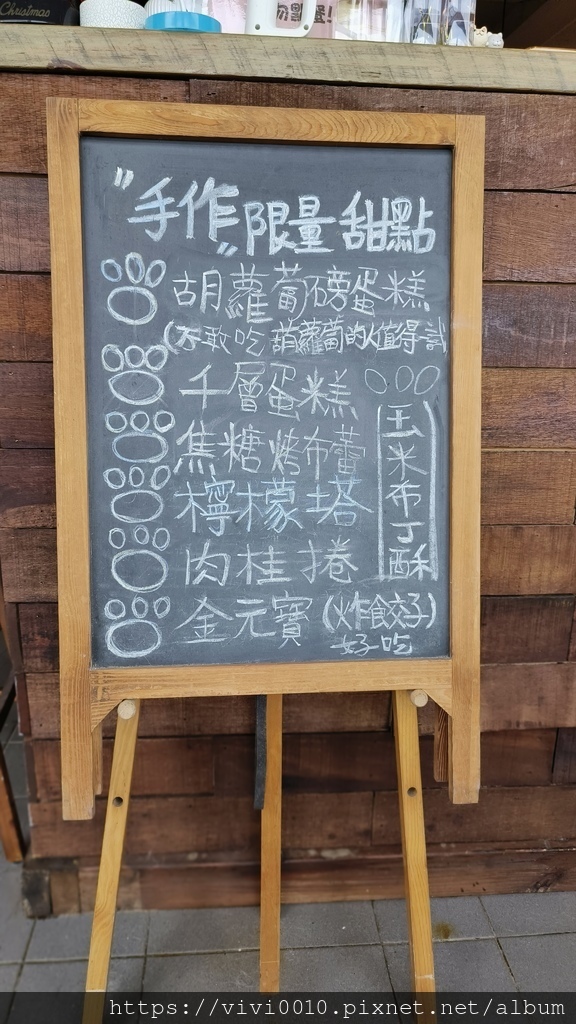 Christmas
"手作"限量甜點
胡蘿蔔磅蛋糕
(不敢吃胡蘿蔔的値得試
千層蛋糕
焦糖烤布蕾
檸檬塔
肉桂捲
金元寶(炸餃子)
好吃
玉米布丁酥
https://vivi0010.pixnet.net/album